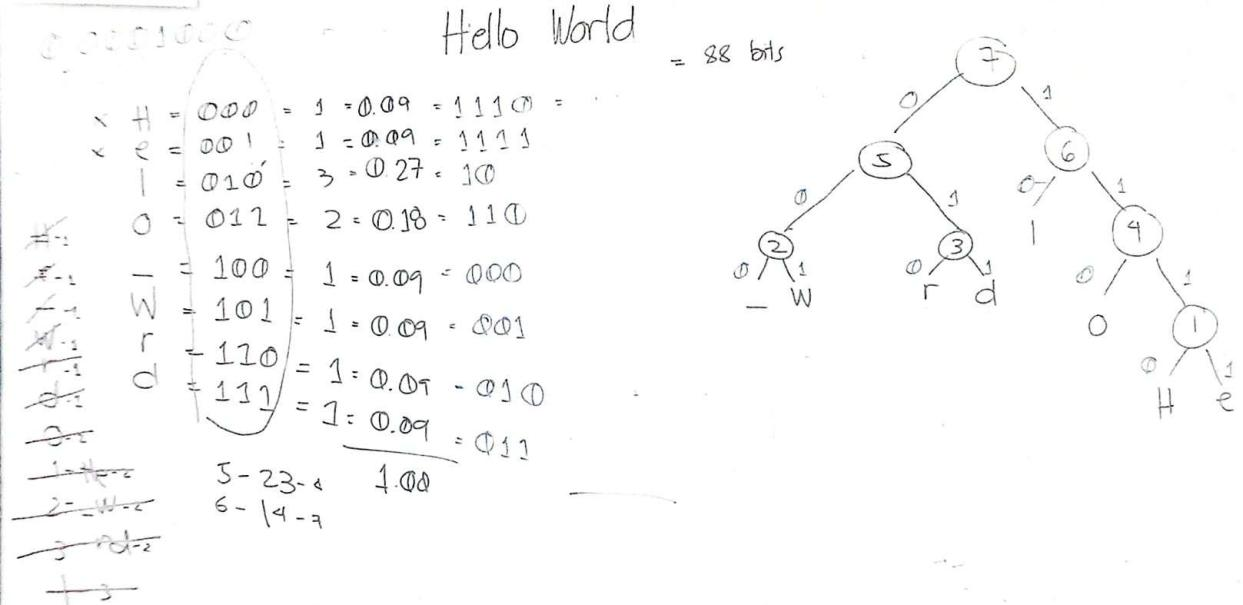 Hello World
= 88 bits
0 0001000
x H = 000 = 1 = 0.09 = 1110 =
x e = 001 = 1 = 0.09 = 1111
l = 010 = 3 = 0.27 = 10
O = 011 = 2 = 0.18 = 110
_ = 100 = 1 = 0.09 = 000
W = 101 = 1 = 0.09 = 001
r = 110 = 1 = 0.09 - 010
d = 111 = 1 = 0.09 = 011
1.00
5 - 23 - 4
6 - 14 - 7
H-1
W-1
r-1
d-1
O-2
1-He-2
2-_W-2
3-rd-2
l-3
7
0 1
5 6
0 1 0 1
2 3 l 4
0 1 0 1 0 1
_ W r d O 1
0 1
H e